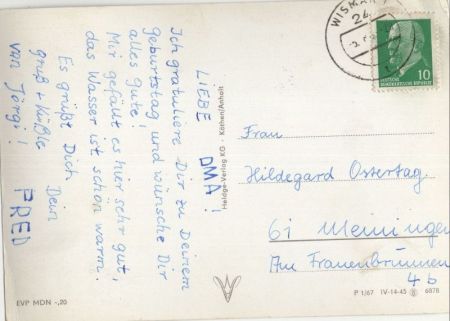 LIEBE OMA!
Ich gratuliere Dir zu Deinem
Geburtstag und wünsche Dir
alles Gute!
Mir gefällt es hier sehr gut,
das Wasser ist schön warm.
Es grüßt Dich Dein
FRED
gruß + Küßle
von Jörgi!
Heldge-Verlag KG · Köthen/Anhalt
WISMAR
24
DEUTSCHE
DEMOKRATISCHE REPUBLIK
10
Frau
Hildegard Ostertag
61 Meiningen
Am Frauenbrunnen
4b
EVP MDN -,20
P 1/67 IV-14-45 6878